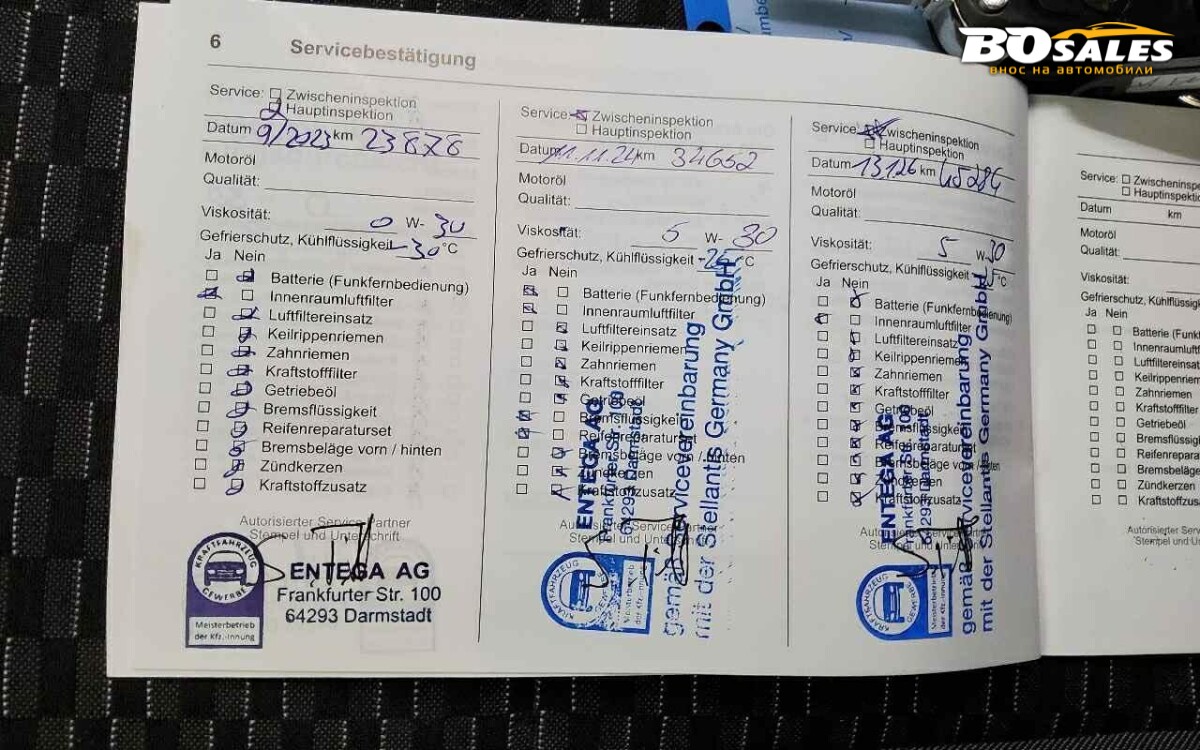 BO SALES
ВНОС НА АВТОМОБИЛИ
6 Servicebestätigung
Service: Zwischeninspektion
Hauptinspektion
Datum 9/2023 km 23878
Motoröl
Qualität:
Viskosität: 0 W- 30
Gefrierschutz, Kühlflüssigkeit -30 °C
Ja Nein
Batterie (Funkfernbedienung)
Innenraumluftfilter
Luftfiltereinsatz
Keilrippenriemen
Zahnriemen
Kraftstofffilter
Getriebeöl
Bremsflüssigkeit
Reifenreparaturset
Bremsbeläge vorn / hinten
Zündkerzen
Kraftstoffzusatz
Autorisierter Service Partner
Stempel und Unterschrift
KRAFTFAHRZEUG
GEWERBE
Meisterbetrieb
der Kfz.-Innung
ENTEGA AG
Frankfurter Str. 100
64293 Darmstadt
Service: Zwischeninspektion
Hauptinspektion
Datum 11.11.24 km 34652
Motoröl
Qualität:
Viskosität: 5 W- 30
Gefrierschutz, Kühlflüssigkeit °C
Ja Nein
Batterie (Funkfernbedienung)
Innenraumluftfilter
Luftfiltereinsatz
Keilrippenriemen
Zahnriemen
Kraftstofffilter
Getriebeöl
Bremsflüssigkeit
Reifenreparaturset
Bremsbeläge vorn / hinten
Zündkerzen
Kraftstoffzusatz
Autorisierter Service Partner
Stempel und Unterschrift
KRAFTFAHRZEUG
GEWERBE
Meisterbetrieb
der Kfz.-Innung
ENTEGA AG
Frankfurter Str. 100
64293 Darmstadt
gemäß Servicevereinbarung
mit der Stellantis Germany GmbH
Service: Zwischeninspektion
Hauptinspektion
Datum km 45284
Motoröl
Qualität:
Viskosität: 5 W- 30
Gefrierschutz, Kühlflüssigkeit °C
Ja Nein
Batterie (Funkfernbedienung)
Innenraumluftfilter
Luftfiltereinsatz
Keilrippenriemen
Zahnriemen
Kraftstofffilter
Getriebeöl
Bremsflüssigkeit
Reifenreparaturset
Bremsbeläge vorn / hinten
Zündkerzen
Kraftstoffzusatz
Autorisierter Service
Stempel und
KRAFTFAHRZEUG
GEWERBE
Meisterbetrieb
der Kfz.-Innung
ENTEGA AG
Frankfurter Str. 100
64293 Darmstadt
gemäß Servicevereinbarung
mit der Stellantis Germany GmbH
Service: Zwischeninspektion
Hauptinspektion
Datum km
Motoröl
Qualität:
Viskosität:
Gefrierschutz, Kühlflüssig
Ja Nein
Batterie (Funkfer
Innenraumluft
Luftfiltereinsat
Keilrippenriem
Zahnriemen
Kraftstofffilter
Getriebeöl
Bremsflüssig
Reifenrepara
Bremsbeläge
Zündkerzen
Kraftstoffzus
Autorisierter Servic
Stempel und Un